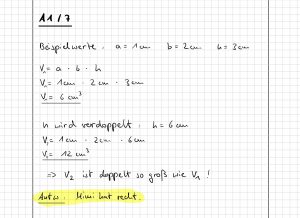 11/7
Beispielwerte: a = 1cm b = 2cm h = 3cm
V₁ = a · b · h
V₁ = 1cm · 2cm · 3cm
V₁ = 6cm³
h wird verdoppelt: h = 6cm
V₂ = 1cm · 2cm · 6cm
V₂ = 12cm³
=> V₂ ist doppelt so groß wie V₁ !
Antw.: Mimi hat recht.